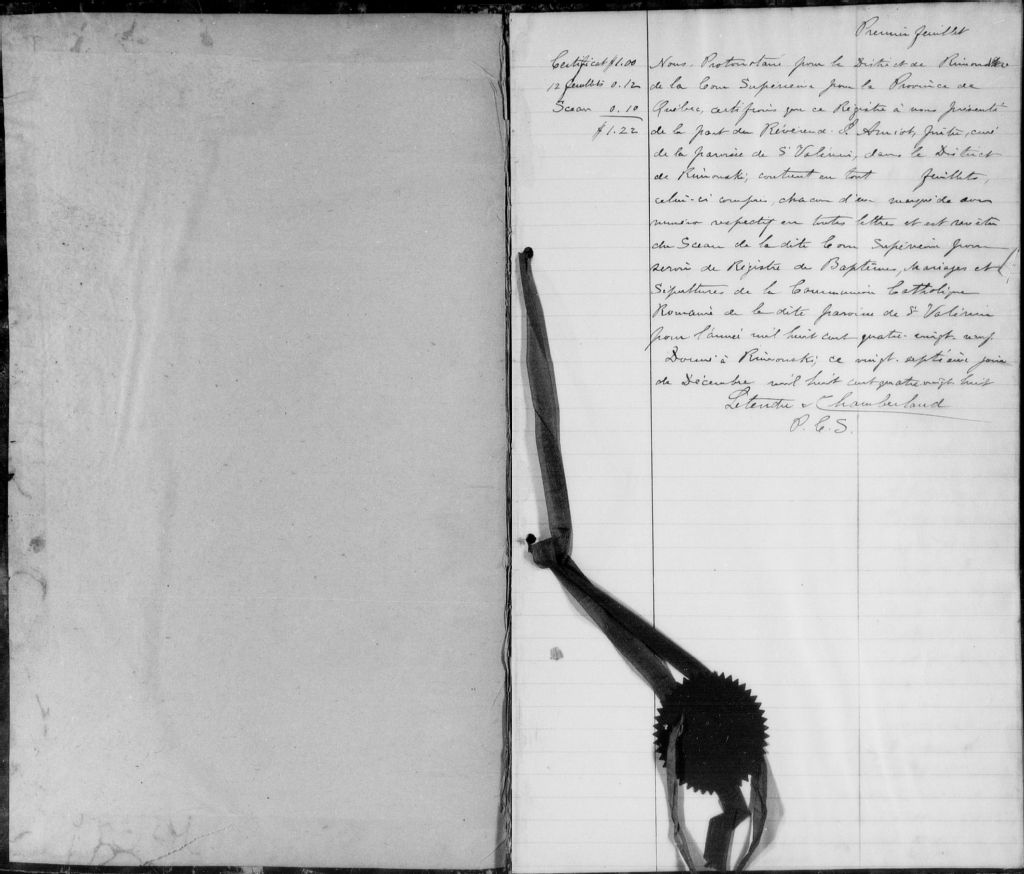 Premier feuillet
Certificat $1.00
12 feuillets 0.12
Sceau 0.10
$1.22
Nous, Protonotaire pour le District de Rimouski
de la Cour Supérieure pour la Province de
Québec, certifions que ce Régistre à nous présenté
de la part du Révérend P. Amiot, prêtre, curé
de la paroisse de St Valérien, dans le District
de Rimouski, contient en tout feuillets,
celui-ci compris, chacun d'eux marqué de son
numéro respectif en toutes lettres et est revêtu
du Sceau de la dite Cour Supérieure pour
servir de Régistre de Baptêmes, Mariages et
Sépultures de la Communion Catholique
Romaine de la dite paroisse de St Valérien
pour l'année mil huit cent quatre-vingt-neuf
Donné à Rimouski, ce vingt-septième jour
de Décembre mil huit cent quatre vingt huit
Letendre & Chamberland
P. C. S.